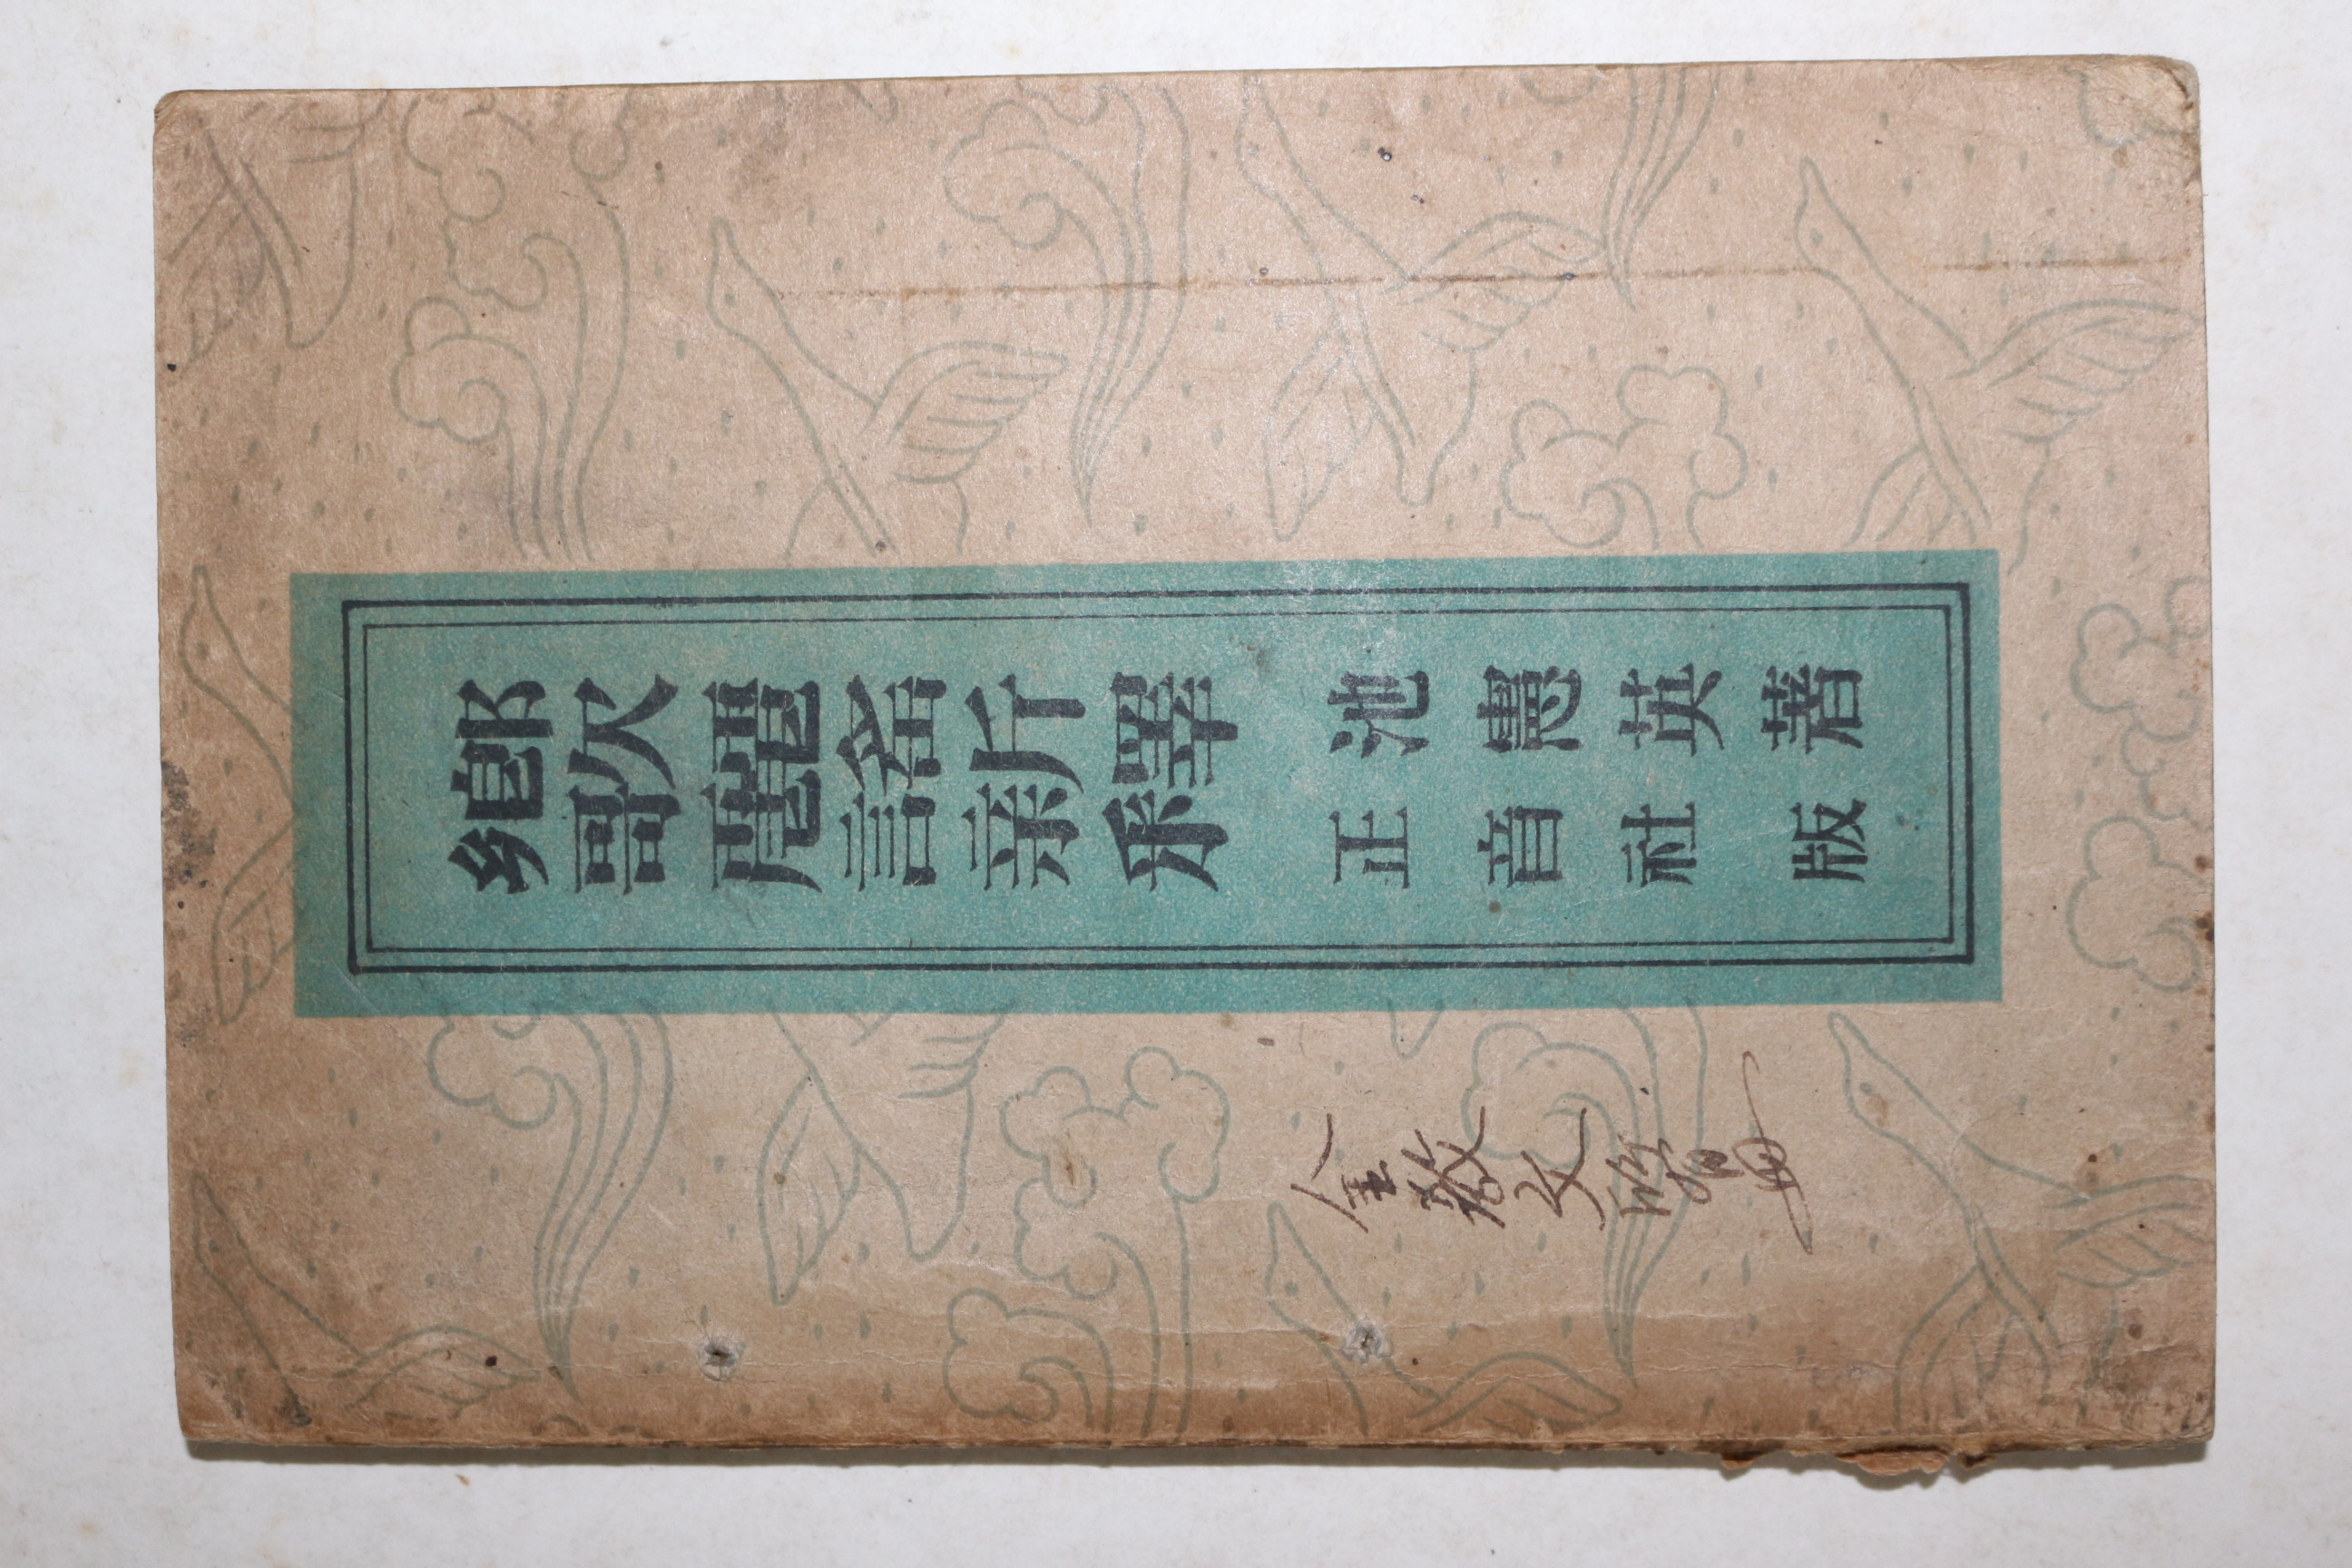 鄕歌麗謠新釋
池憲英著
正音社版
金敎文